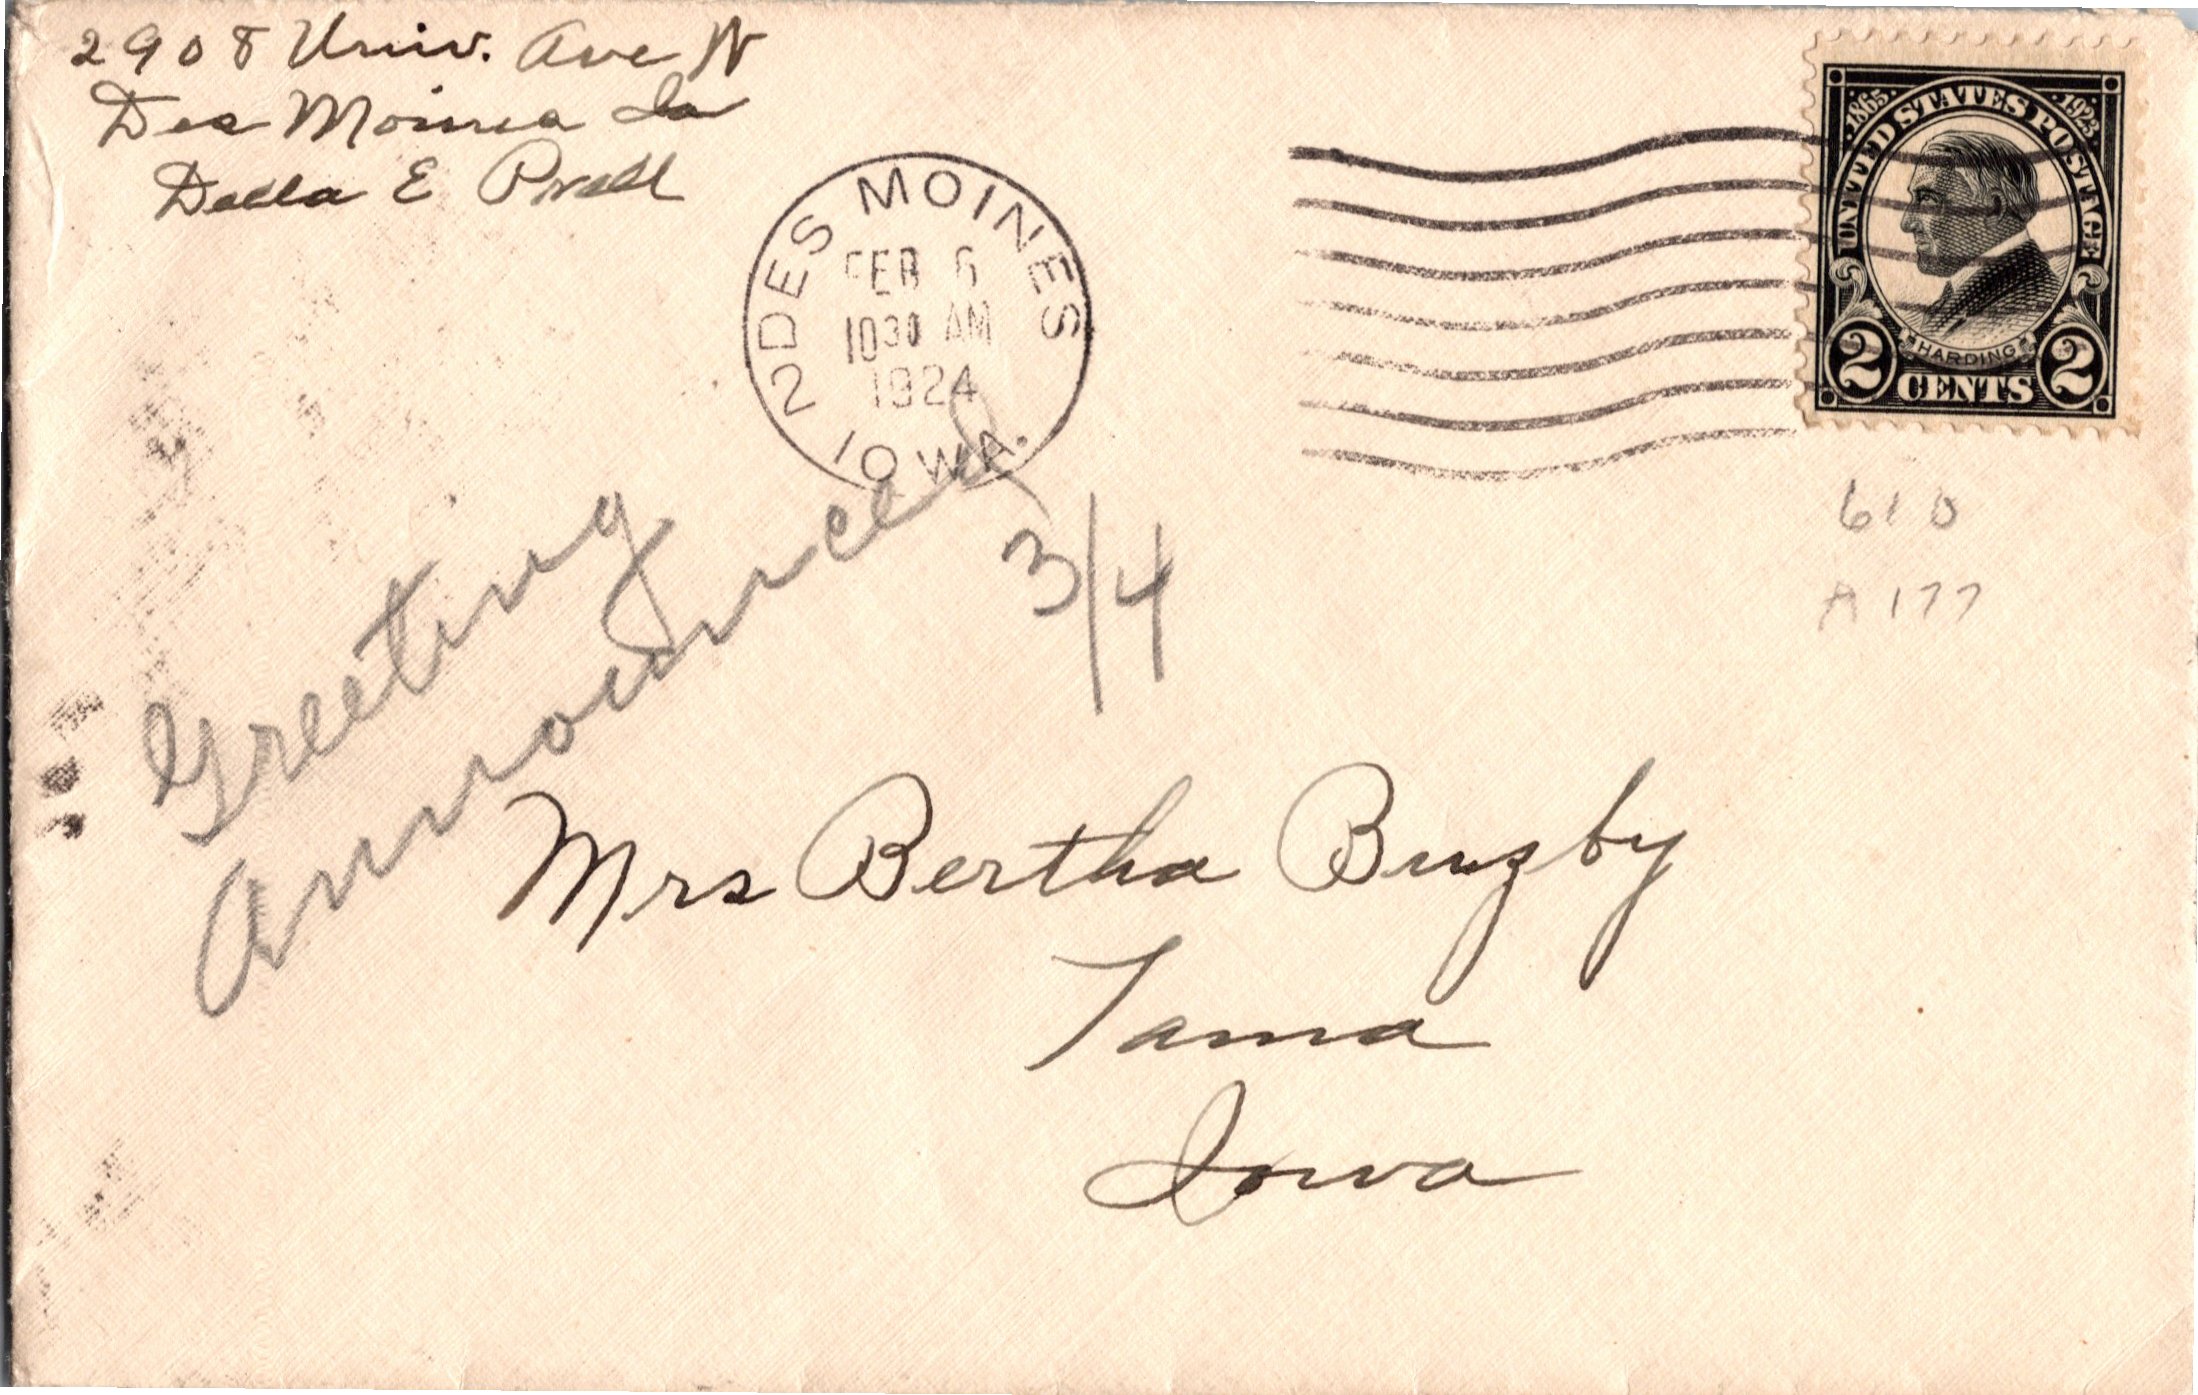 2908 Univ. Ave W
Des Moines Ia
Della E Prall
2 DES MOINES
FEB 6
1030 AM
1924
IOWA.
1865 1923
UNITED STATES POSTAGE
HARDING
2 CENTS 2
610
A177
Greeting
Announced
3/4
Mrs Bertha Buzby
Tama
Iowa